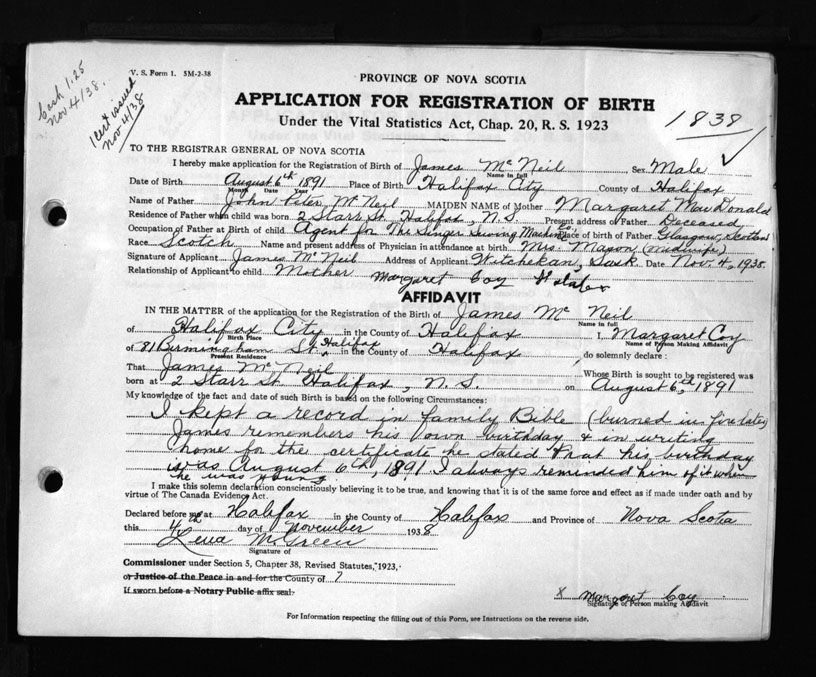 cash 1.25
Nov 4/38.
1 cert issued
Nov 4/38
V. S. Form 1. 5M-2-38
PROVINCE OF NOVA SCOTIA
APPLICATION FOR REGISTRATION OF BIRTH
Under the Vital Statistics Act, Chap. 20, R. S. 1923
1838
TO THE REGISTRAR GENERAL OF NOVA SCOTIA
I hereby make application for the Registration of Birth of James McNeil Sex Male
Name in full
Date of Birth August 6th 1891 Place of Birth Halifax City County of Halifax
Month Date Year
Name of Father John Peter McNeil MAIDEN NAME of Mother Margaret MacDonald
Residence of Father when child was born 2 Starr St. Halifax, N.S. Present address of Father Deceased
Occupation of Father at Birth of child Agent for The Singer Sewing Machine Co. Place of birth of Father Glasgow, Scotland
Race Scotch Name and present address of Physician in attendance at birth Mrs. Mason (midwife)
Signature of Applicant James McNeil Address of Applicant Witchekan, Sask. Date Nov. 4, 1938.
Relationship of Applicant to child Mother Margaret Coy Halifax
AFFIDAVIT
IN THE MATTER of the application for the Registration of the Birth of James Mc Neil
Name in full
of Halifax City in the County of Halifax I, Margaret Coy
Birth Place Name of Person Making Affidavit
of 81 Birmingham St. Halifax in the County of Halifax, do solemnly declare:
Present Residence
That James McNeil Whose Birth is sought to be registered was
born at 2 Starr St. Halifax, N.S. on August 6th, 1891
My knowledge of the fact and date of such Birth is based on the following Circumstances:
I kept a record in family Bible (burned in fire later)
James remembers his own birthday & in writing
home for the certificate he stated that his birthday
was August 6th, 1891 I always reminded him of it when
he was young.
I make this solemn declaration conscientiously believing it to be true, and knowing that it is of the same force and effect as if made under oath and by
virtue of The Canada Evidence Act.
Declared before me at Halifax in the County of Halifax and Province of Nova Scotia
this 4th day of November 1938
Lena McGreen
Signature of
Commissioner under Section 5, Chapter 38, Revised Statutes, 1923,
or Justice of the Peace in and for the County of ?
If sworn before a Notary Public affix seal.
x Margaret Coy
Signature of Person making Affidavit
For Information respecting the filling out of this Form, see Instructions on the reverse side.